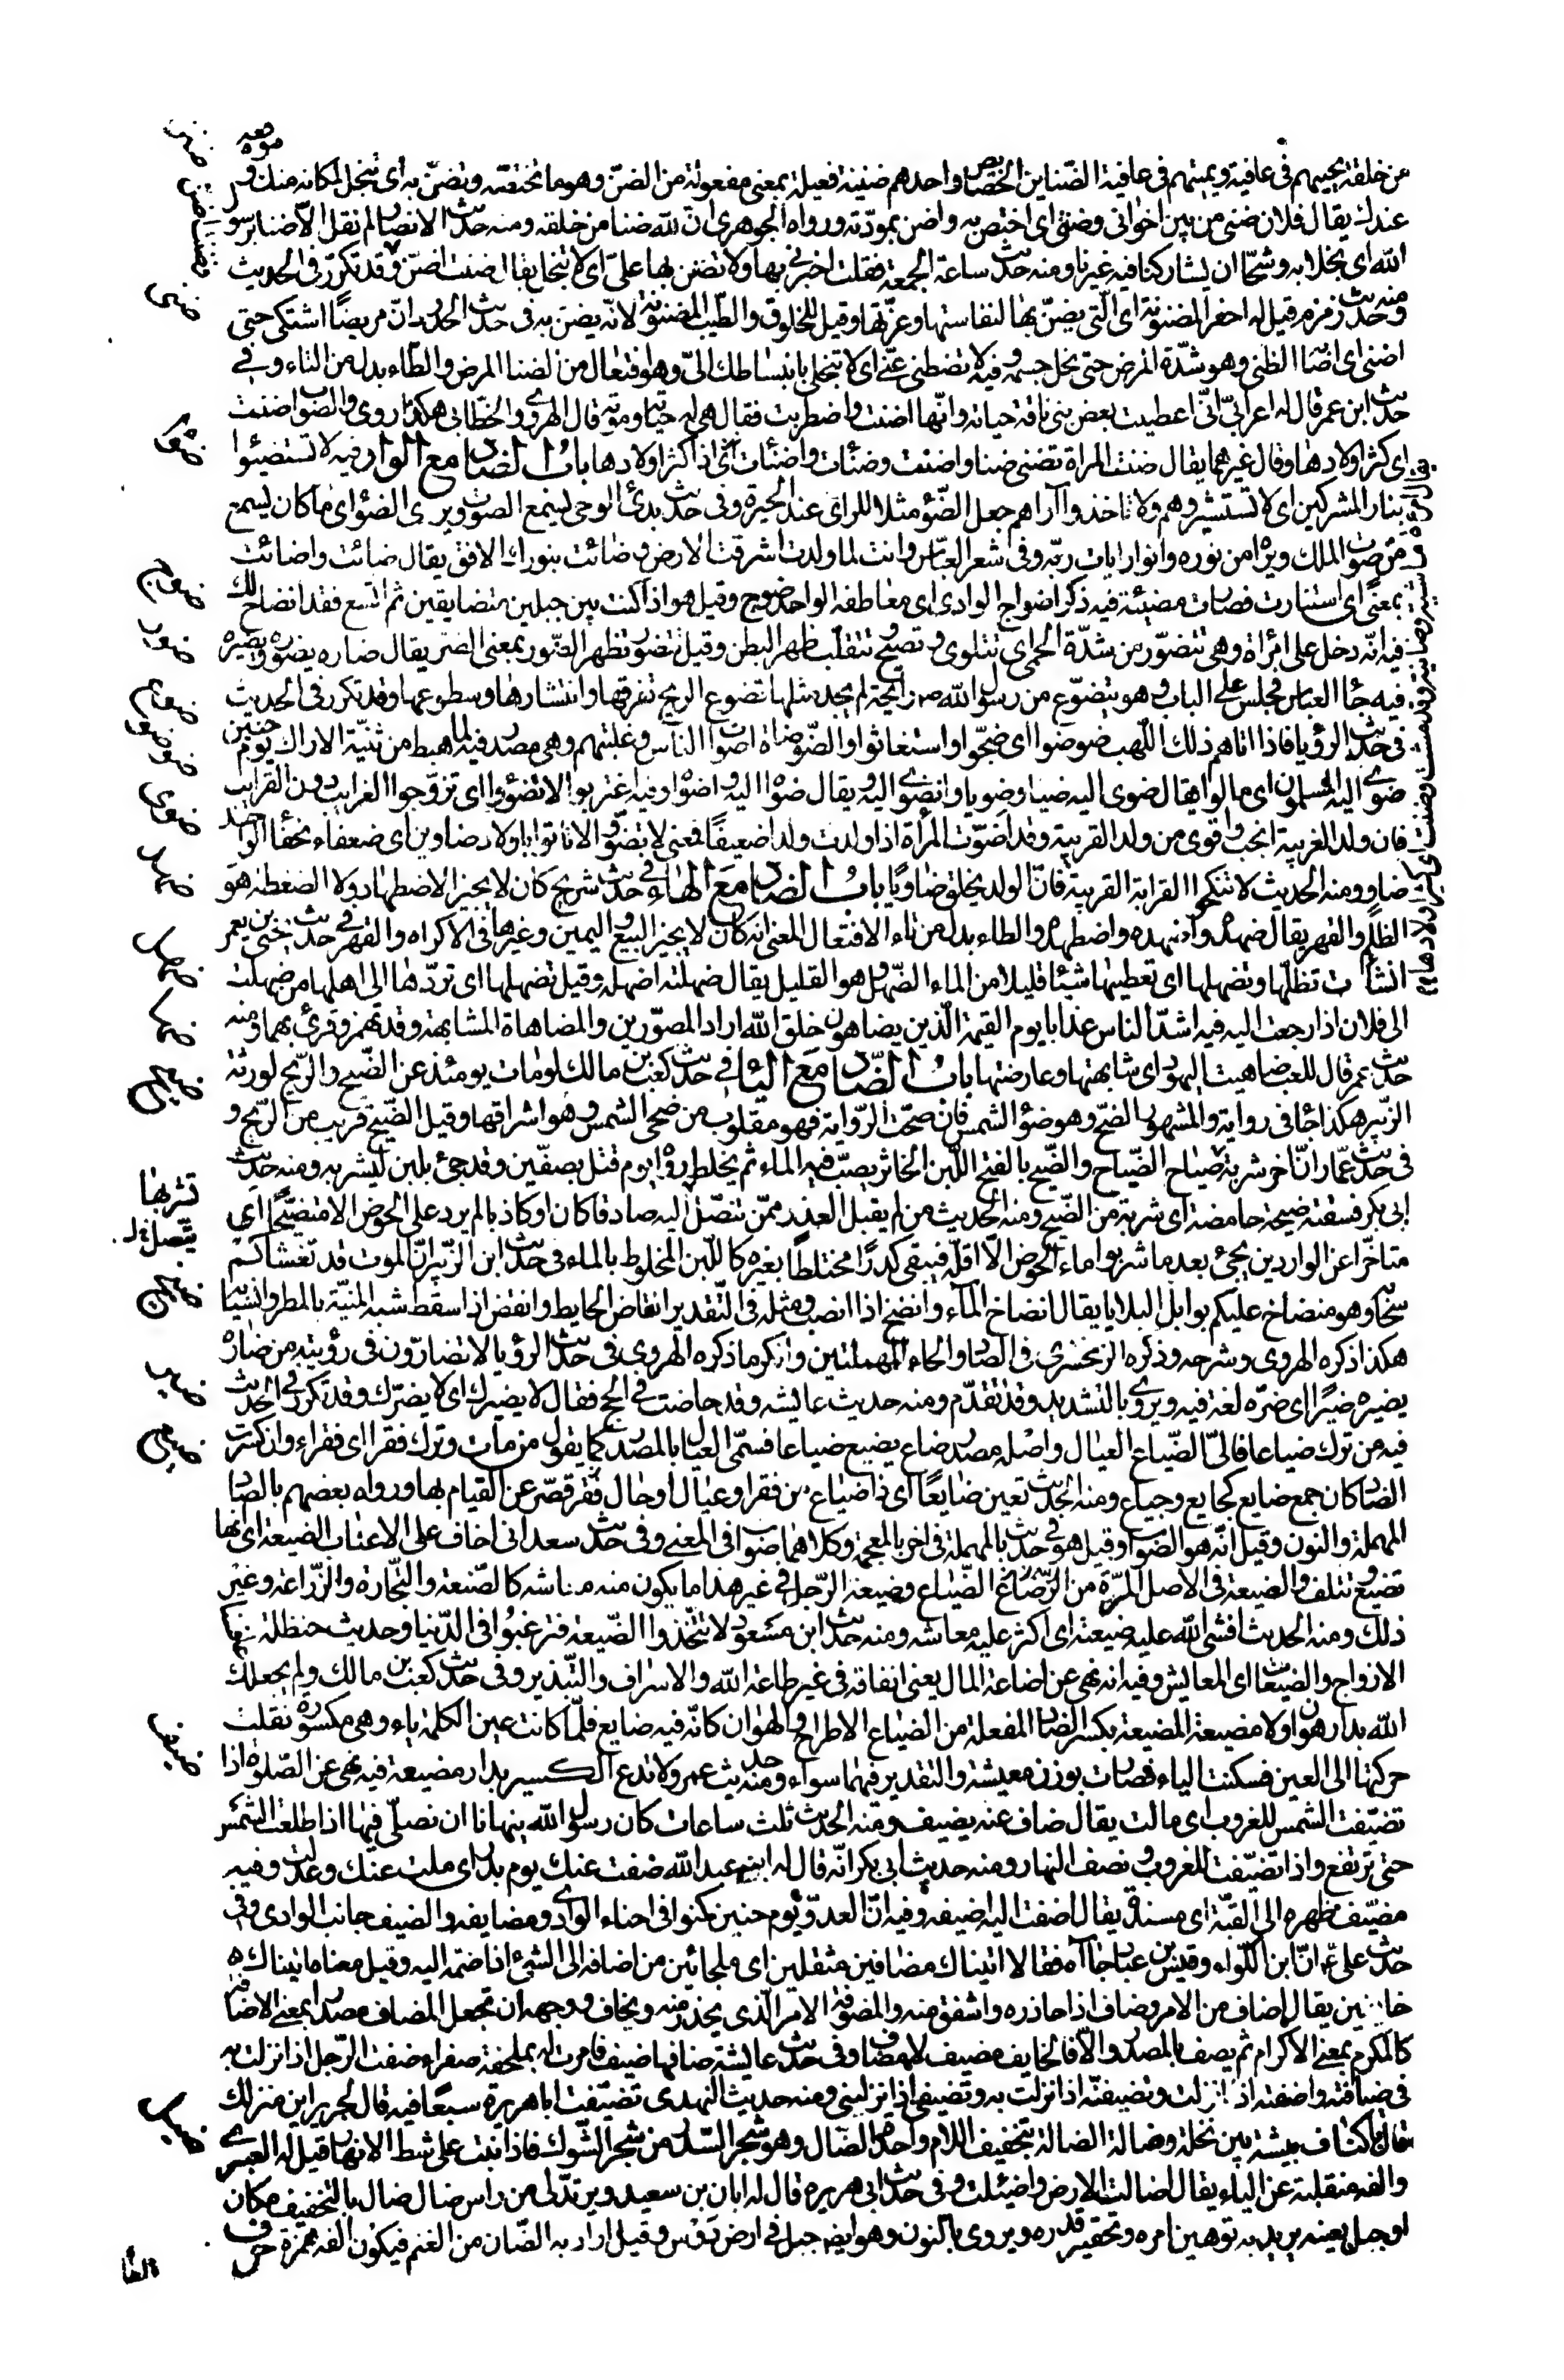 من خلقه يحييهم فى عافية ويميتهم فى عافية الضناين الخصايص واحدهم ضنينة فعيلة بمعنى مفعولة من الضن وهو ما تختصه وتضن به اى تبخل لمكانه منك وموقعه
عندك يقال فلان ضنى من بين اخوانى وضنتى اى اختص به واضن بمودته ورواه الجوهرى ان لله ضنا من خلقه ومنه حديث الانصار لم نقل الا ضنا برسول
الله اى بخلا به وشحا ان يشاركنا فيه غيرنا ومنه حديث ساعة الجمعة فقلت اخبرنى بها ولا تضنن بها على اى لا تبخل يقال ضننت اضن وقد تكرر فى الحديث
ومنه حديث زمزم قيل له احفر المضنونة اى التى يضن بها لنفاستها وعزتها وقيل للخلوق والطيب المضنونة لانه يضن به فى حديث الحدود ان مريضا اشتكى حتى
اضنى اى اصابه الضنى وهو شدة المرض حتى نحل جسمه وفيه لا تضطنى عنى اى لا تبخلى بانبساطك الى وهو افتعال من الضنا المرض والطاء بدل من التاء وفى
حديث ابن عمر قال له اعرابى انى اعطيت بعض بنى ناقة حياته وانها اضنت واضطربت فقال هى له حياته وموته قال الهروى والخطابى هكذا روى والصواب ضنت
اى كثر اولادها وقال غيرهما يقال ضنت المراة تضنى ضنا واضنت وضنات واضنات اى اذا كثر اولادها باب الضاد مع الواو فيه لا تستضيئوا
بنار المشركين اى لا تستشيروهم ولا تاخذوا آراهم جعل الضوء مثلا للراى عند الحيرة وفى حديث بدئ الوحى يسمع الصوت ويرى الضوء اى ما كان يسمع
من صوت الملك ويراه من نوره وانوار ايات ربه وفى شعر العباس وانت لما ولدت اشرقت الارض وضائت بنورك الافق يقال ضائت واضائت
بمعنى اى استنارت فصارت مضيئة فيه ذكر اضواج الوادى اى معاطفه الواحد ضوج وقيل هو اذا كنت بين جبلين متضايقين ثم اتسع فقد انضاج لك
فيه انه دخل على امرأة وهى تتضور من شدة الحمى اى تتلوى وتصيح وتتقلب ظهر البطن وقيل تتضور تظهر الضور بمعنى الضر يقال ضاره يضوره ويضيره
فيه جاء العباس فجلس على الباب وهو يتضوع من رسول الله ص رايحة لم يجد مثلها تضوع الريح تفرقها وانتشارها وسطوعها وقد تكرر فى الحديث
فى حديث الرؤيا فاذا اتاهم ذلك اللهب ضوضوا اى ضجوا واستغاثوا والضوضاة اصوات الناس وغلبتهم وهى مصدر فيه لما هبط من ثنية الاراك يوم حنين
ضوى اليه المسلمون اى مالوا يقال ضوى اليه ضيا وضويا وانضوى اليه ويقال ضواه اليه واضواه وفيه اغتربوا لا تضووا اى تزوجوا الغرايب دون القرايب
فان ولد الغريبة انجب واقوى من ولد القريبة وقد اضوت المرأة اذا ولدت ولدا ضعيفا فمعنى لا تضووا لا تاتوا باولاد ضاوين اى ضعفاء نحفا الواحد
ضاو ومنه الحديث لا تنكحوا القرابة القريبة فان الولد يخلق ضاويا باب الضاد مع الهاء فى حديث شريح كان لا يجيز الاضطهاد ولا الضغطة هو
الظلم والقهر يقال ضهده واضهده واضطهده والطاء بدل من تاء الافتعال المعنى انه كان لا يجيز البيع واليمين وغيرها فى الاكراه والقهر فى حديث يحيى بن يعمر
انشأت تطلها وتضهلها اى تعطيها شيئا قليلا من الماء الضهل وهو القليل يقال ضهلته اضهله وقيل تضهلها اى تردها الى اهلها من ضهلت
الى فلان اذا رجعت اليه فيه اشد الناس عذابا يوم القيمة الذين يضاهون خلق الله اراد المصورين والمضاهاة المشابهة وقد تهمز وقرئ بهما ومنه
حديث عمر قال لكعب ضاهيت اليهود اى شابهتها وعارضتها باب الضاد مع الياء فى حديث كعب بن مالك لو مات يومئذ عن الضيح والريح لورثه
الزبير هكذا جاء فى رواية والمشهور الضح وهو ضوء الشمس فان صحت الرواية فهو مقلوب من ضحى الشمس وهو اشراقها وقيل الضيح قريب من الريح و
فى حديث عمار ان آخر شربة تشربها ضياح الضياح والضيح بالفتح اللبن الخاثر يصب فيه الماء ثم يخلط رواه يوم قتل بصفين وقد جئ بلبن ليشربه ومنه حديث
ابى بكر فسقته ضيحة حامضة اى شربة من الضيح ومنه الحديث من لم يقبل العذر ممن تنصل اليه صادقا كان او كاذبا لم يرد على الحوض الا متضيحا اى
متاخرا عن الواردين يجئ بعد ما شربوا ماء الحوض الا اقله فيبقى كدرا مختلطا بغيره كاللبن المخلوط بالماء فى حديث ابن الزبير ان الموت قد تغشاكم
سحابه وهو منضاخ عليكم بوابل البلايا يقال انضاخ الماء وانضخ اذا انصب ومثله فى التقدير انقاض الحايط وانقض اذا سقط شبه المنية بالمطر وانسيابه
هكذا ذكره الهروى وشرحه وذكره الزمخشرى فى الصاد والحاء المهملتين وانكر ما ذكره الهروى فى حديث الرؤيا لا تضارون فى رؤيته من ضاره
يضيره ضيرا اى ضره لغة فيه ويروى بالتشديد وقد تقدم ومنه حديث عايشه وقد حاضت فى الحج فقال لا يضيرك اى لا يضرك وقد تكرر فى الحديث
فيه من ترك ضياعا فالى الضياع العيال واصله مصدر ضاع يضيع ضياعا فسمى العيال بالمصدر كما يقول من مات وترك فقرا اى فقراء وان كسرت
الضاد كان جمع ضايع كجايع وجياع ومنه الحديث تعين ضايعا اى ذا ضياع من فقر او عيال او حال قصر عن القيام بها ورواه بعضهم بالصاد
المهملة والنون وقيل انه هو الصواب وقيل هو فى حديث بالمهملة وفى آخر بالمعجمة وكلاهما صواب فى المعنى وفى حديث سعد انى اخاف على الاعناب الضيعة اى انها
تضيع وتتلف والضيعة فى الاصل المرة من الضياع وضيعة الرجل فى غير هذا ما يكون منه معاشه كالصنعة والتجارة والزراعة وغير
ذلك ومنه الحديث افشى الله عليه ضيعته اى اكثر عليه معاشه ومنه حديث ابن مسعود لا تتخذوا الضيعة فترغبوا فى الدنيا وحديث حنظلة
الازواج والضيعات اى المعايش وفيه انه نهى عن اضاعة المال يعنى انفاقه فى غير طاعة الله والاسراف والتبذير وفى حديث كعب بن مالك ولم يجعلك
الله بدار هوان ولا مضيعة المضيعة بكسر الضاد المفعلة من الضياع الاطراح والهوان كانه فيه ضايع فلما كانت عين الكلمة ياء وهى مكسورة نقلت
حركتها الى العين فسكنت الياء فصارت بوزن معيشة والتقدير فيهما سواء ومنه حديث عمر ولا تدع الكسير بدار مضيعة فيه نهى عن الصلوة اذا
تضيفت الشمس للغروب اى مالت يقال ضاف عنه يضيف ومنه الحديث ثلث ساعات كان رسول الله ينهانا ان نصلى فيها اذا طلعت الشمس
حتى ترتفع واذا تضيفت للغروب ونصف النهار ومنه حديث ابى بكر انه قال له ابنه عبد الله ضفت عنك يوم بدر اى ملت عنك وعدلت وفيه
مضيف ظهره الى القبة اى مسنده يقال اضفت اليه اضيفه وفيه ان العدو يوم حنين كمنوا فى احناء الوادى ومضايفه والضيف جانب الوادى وفى
حديث على ع ان ابن الكواء وقيس بن عباد جاآه فقالا اتيناك مضافين مثقلين اى ملجائين من اضافه الى الشئ اذا ضمه اليه وقيل معناه اتيناك
خائفين يقال اضاف من الامر وضاف اذا حاذره واشفق منه والمضوفة الامر الذى يحذر منه ويخاف ووجهه ان تجعل المضاف مصدرا بمعنى الاضافة
كالمكرم بمعنى الاكرام ثم يصف بالمصدر والا فالخايف مضيف لا مضاف وفى حديث عايشة ضافها ضيف فامرت له بملحفة صفراء ضفت الرجل اذا نزلت به
فى ضيافته واضفته اذا انزلته وتضيفته اذا نزلت به وتضيفنى اذا انزلنى ومنه حديث النهدى تضيفت ابا هريرة سبعا فيه قال لجرير اين منزلك
قال باكناف بيشة بين نخلة وضالة الضالة بتخفيف اللام واحدة الضال وهو شجر السدر من شجر الشوك فاذا نبتت على شط الانهار قيل له العبرى
والفه منقلبة عن الياء يقال اضالت الارض واضيلت وفى حديث ابى هريرة قال له ابان بن سعيد وبر تدلى من راس ضال ضال بالتخفيف مكان
او جبل بعينه يريد به توهين امره وتحقير قدره ويروى بالنون وهو ايضا جبل فى ارض دوس وقيل اراد به الضان من الغنم فيكون الفه همزة حرف
الطاء